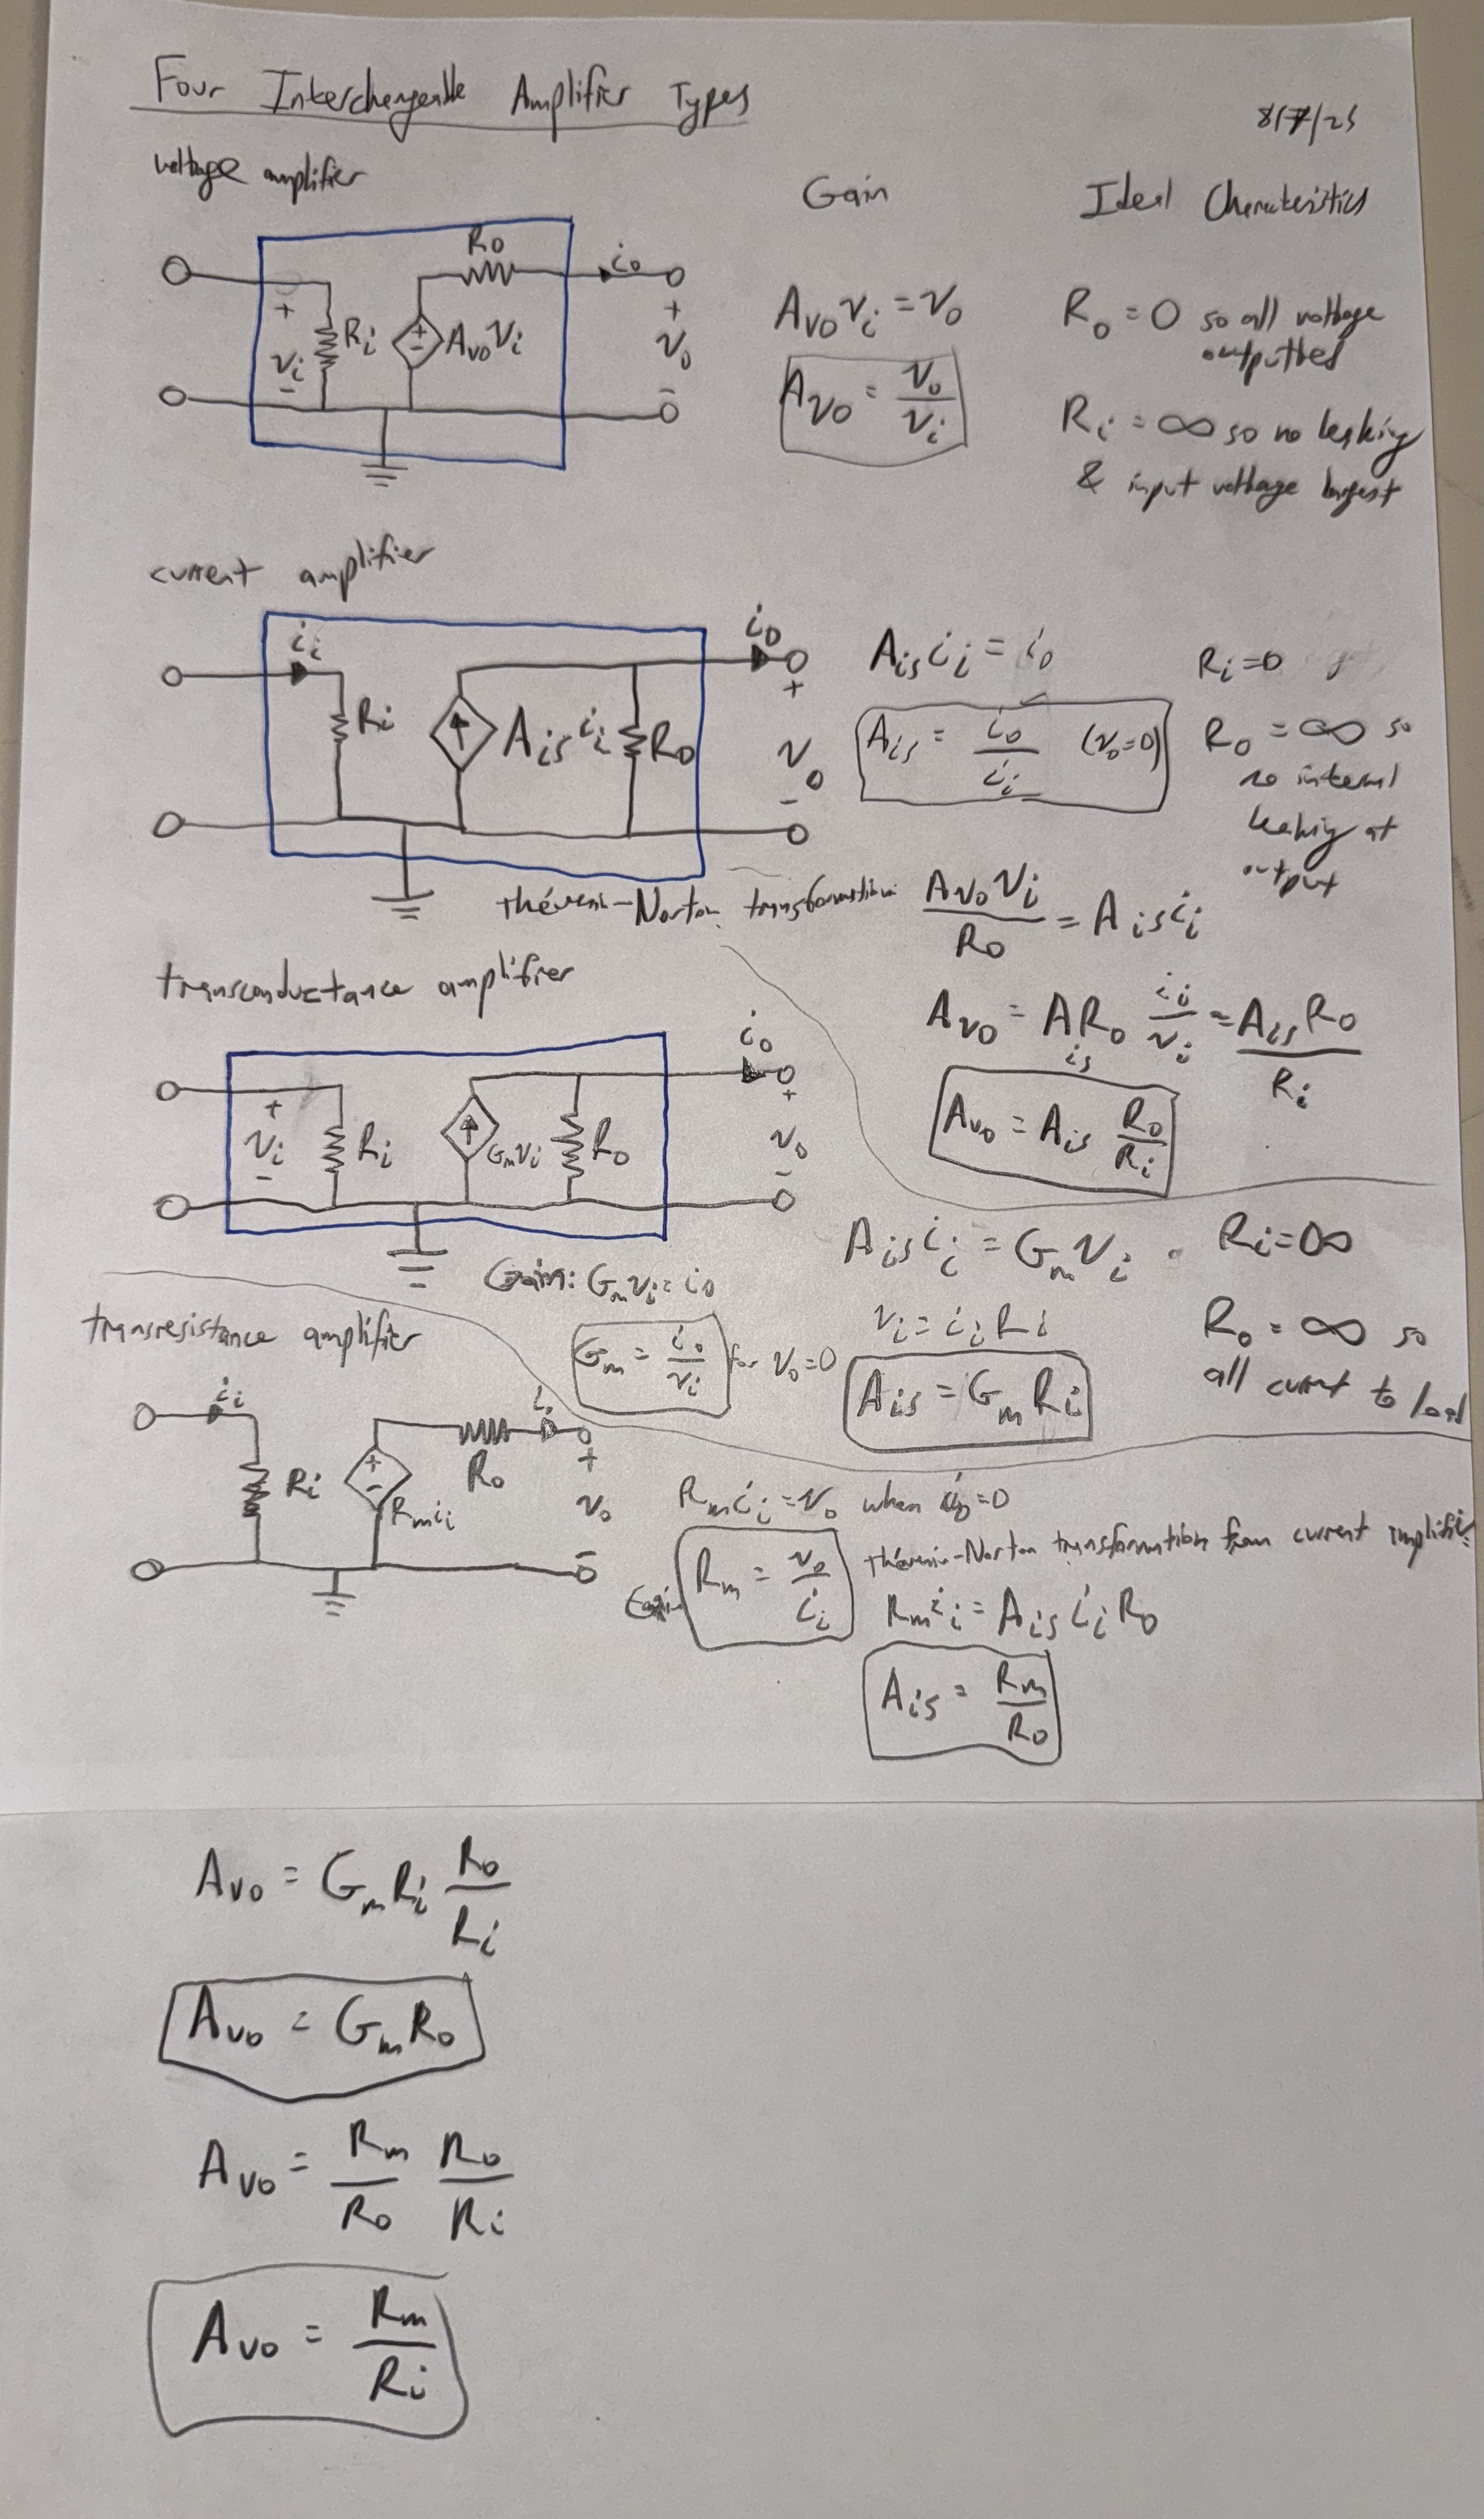 Four Interchangeable Amplifier Types
8/7/25
voltage amplifier
Gain
Ideal Characteristics
Ro
io
+
vi
-
Ri
+
-
Avo vi
+
vo
-
Avo vi = vo
Avo = vo/vi
Ro = 0 so all voltage
outputted
Ri = ∞ so no leaking
& input voltage largest
current amplifier
ii
Ri
Ais ii
Ro
io
+
vo
-
Ais ii = io
Ais = io/ii (vo=0)
Ri = 0
Ro = ∞ so
no internal
leaking at
output
Thévenin-Norton transformation
Avo vi/Ro = Ais ii
Avo = Ais Ro ii/vi = Ais Ro/Ri
Avo = Ais Ro/Ri
transconductance amplifier
+
vi
-
Ri
Gm vi
Ro
io
+
vo
-
Gain: Gm vi = io
Gm = io/vi for vo=0
Ais ii = Gm vi
vi = ii Ri
Ais = Gm Ri
Ri = ∞
Ro = ∞ so
all current to load
transresistance amplifier
ii
Ri
+
-
Rm ii
Ro
+
vo
-
Rm ii = vo when io=0
Gain
Rm = vo/ii
Thévenin-Norton transformation from current amplifier:
Rm ii = Ais ii Ro
Ais = Rm/Ro
Avo = Gm Ri Ro/Ri
Avo = Gm Ro
Avo = Rm/Ro Ro/Ri
Avo = Rm/Ri